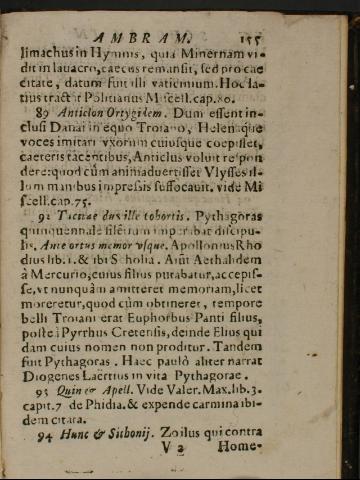 AMBRAM. 155
limachus in Hymnis, quia Mineruam vi-
dit in lauacro, caecus remansit, sed pro cae
citate, datum fuit illi vaticinium. Hoc la-
tius tractat Politianus Miscell. cap. 80.
89 Anticlon Ortygidem. Dum essent in-
clusi Danai in equo Troiano, Helenaque
voces imitari vxorum cuiusque coepisset,
caeteris tacentibus, Anticlus voluit respon
dere: quod cùm animaduertisset Vlysses il-
lum manibus impressis suffocauit. vide Mi
scell. cap. 75.
92 Tacitae dux ille cohortis. Pythagoras
quinquennale silētium imperabat discipu-
lis. Ante ortus memor vsque. Apollonius Rho
dius lib. 1. & ibi Scholia. Aiūt Aethalidem
à Mercurio, cuius filius putabatur, accepis-
se, vt nunquàm amitteret memoriam, licet
moreretur, quod cùm obtineret, tempore
belli Troiani erat Euphorbus Panti filius,
posteà Pyrrhus Cretensis, deinde Elius qui
dam cuius nomen non proditur. Tandem
fuit Pythagoras. Haec paulò aliter narrat
Diogenes Laërtius in vita Pythagorae.
93 Quin & Apell. Vide Valer. Max. lib. 3.
capit. 7 de Phidia. & expende carmina ibi-
dem citata.
94 Hunc & Sithonij. Zoilus qui contra
V 2 Home-